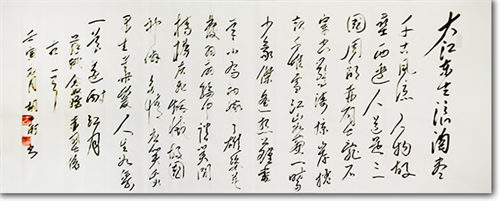 大江东去浪淘尽
千古风流人物故
垒西边人道是三
国周郎赤壁乱石
穿空惊涛拍岸捲
起千堆雪江山如画一时多
少豪傑遥想公瑾当
年小乔初嫁了雄姿英
发羽扇纶巾谈笑间
樯橹灰飞烟灭故国
神游多情应笑我
早生华发人生如梦
一尊还酹江月